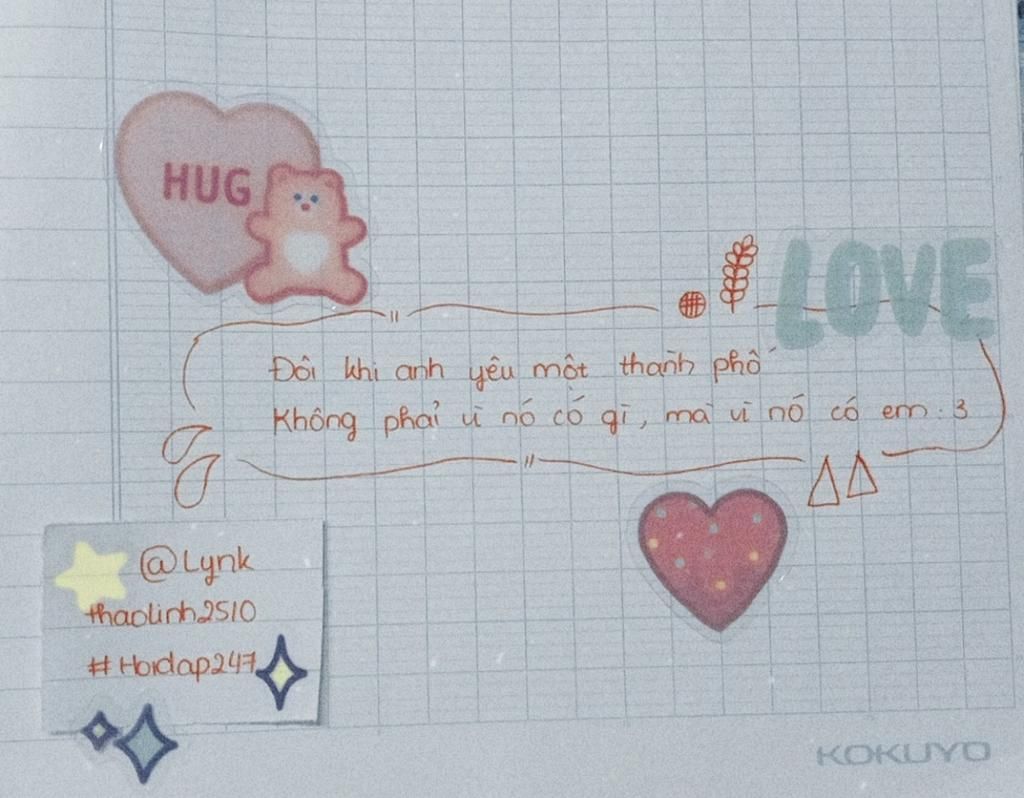 HUG
LOVE
Đôi khi anh yêu một thành phố
Không phải vì nó có gì, mà vì nó có em. :3
@Lynk
thaolinh2510
#Hoidap247
KOKUYO